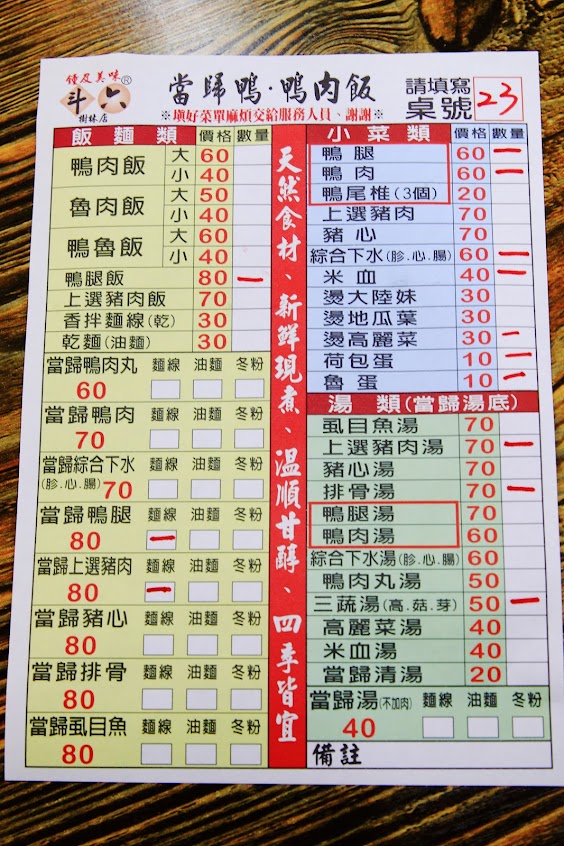 鍾皮美味®
斗六
樹林店
當歸鴨·鴨肉飯
※填好菜單麻煩交給服務人員、謝謝※
請填寫
桌號 23
飯麵類 價格 數量
鴨肉飯 大 60
小 40
魯肉飯 大 50
小 40
鴨魯飯 大 60
小 40
鴨腿飯 80 一
上選豬肉飯 70
香拌麵線(乾) 30
乾麵(油麵) 30
當歸鴨肉丸 麵線 油麵 冬粉
60
當歸鴨肉 麵線 油麵 冬粉
70
當歸綜合下水 麵線 油麵 冬粉
(胗.心.腸) 70
當歸鴨腿 麵線 油麵 冬粉
80 一
當歸上選豬肉 麵線 油麵 冬粉
80 一
當歸豬心 麵線 油麵 冬粉
80
當歸排骨 麵線 油麵 冬粉
80
當歸虱目魚 麵線 油麵 冬粉
80
天然食材、新鮮現煮、溫順甘醇、四季皆宜
小菜類 價格 數量
鴨腿 60 一
鴨肉 60 一
鴨尾椎(3個) 20
上選豬肉 70
豬心 70
綜合下水(胗.心.腸) 60 一
米血 40 一
燙大陸妹 30
燙地瓜葉 30
燙高麗菜 30 一
荷包蛋 10 一
魯蛋 10 一
湯類(當歸湯底)
虱目魚湯 70
上選豬肉湯 70 一
豬心湯 70
排骨湯 70 一
鴨腿湯 70
鴨肉湯 60
綜合下水湯(胗.心.腸) 60
鴨肉丸湯 50
三蔬湯(高.菇.芽) 50 一
高麗菜湯 40
米血湯 40
當歸清湯 20
當歸湯(不加肉) 麵線 油麵 冬粉
40
備註